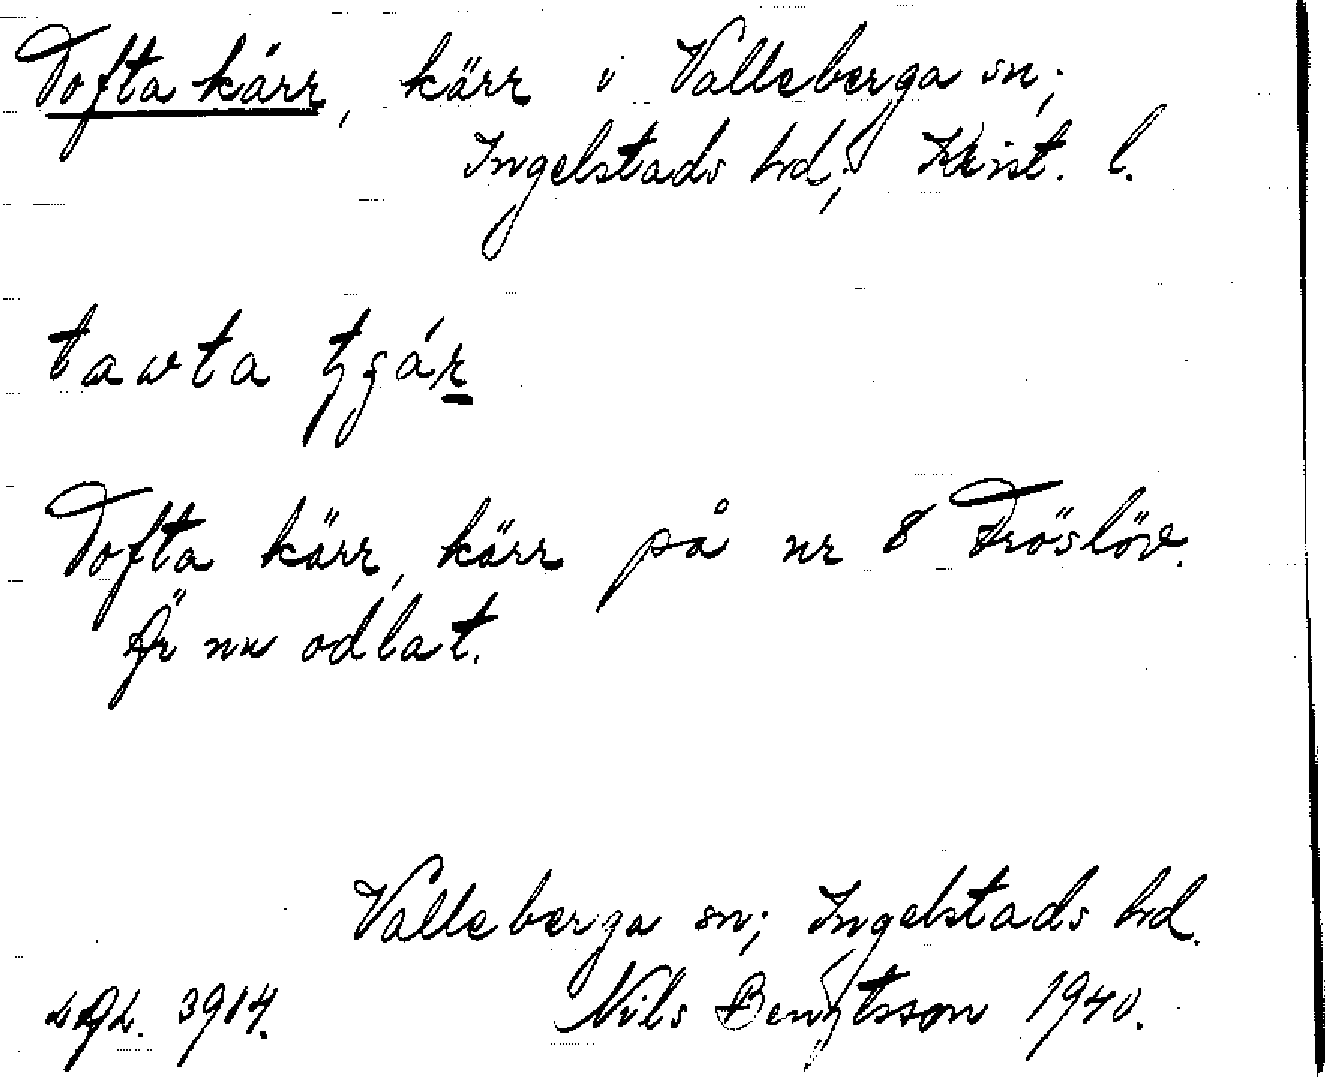 Tofta kärr, kärr i Valleberga sn;
Ingelstads hd; Krist. l.
tawta
Tofta kärr, kärr på nr 8 Fröslöv.
Är nu odlat.
Valleberga sn; Ingelstads hd.
3914. Nils Bengtsson 1940.